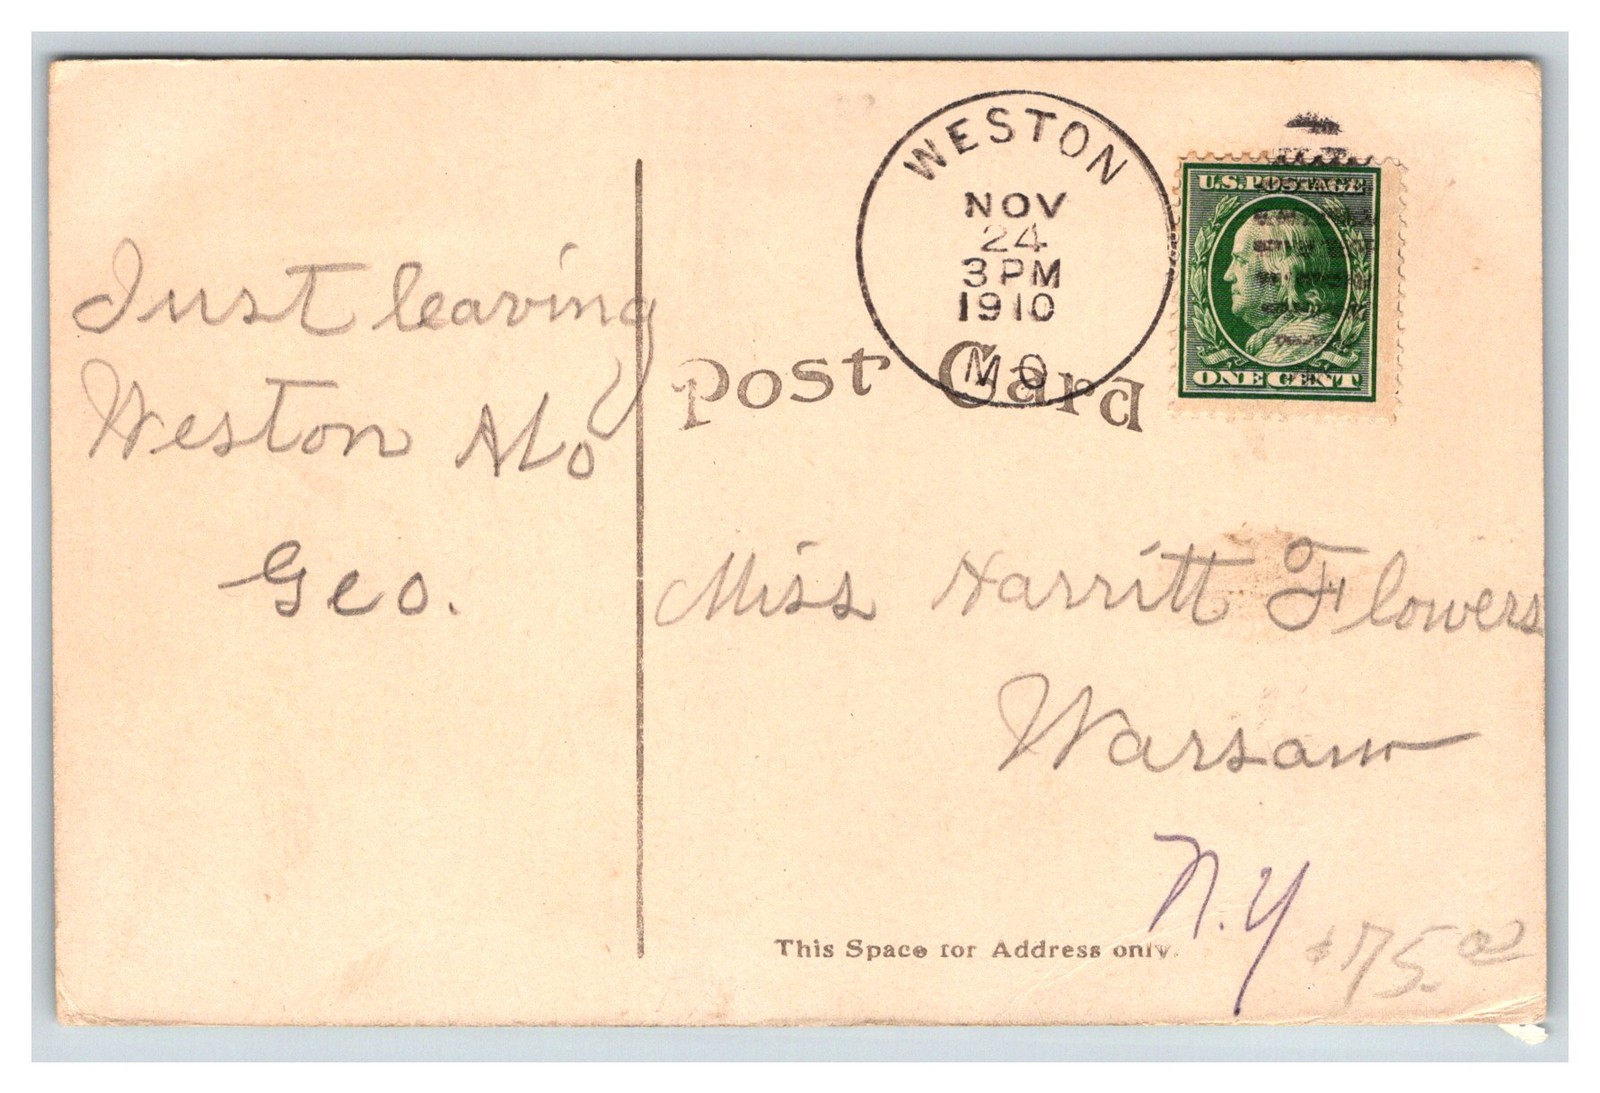 Just leaving
Weston Mo
Geo.
WESTON
NOV
24
3 PM
1910
MO
U.S. POSTAGE
ONE CENT
Post Card
Miss Harritt Flowers
Warsaw
N.Y
This Space for Address only.
$75.00